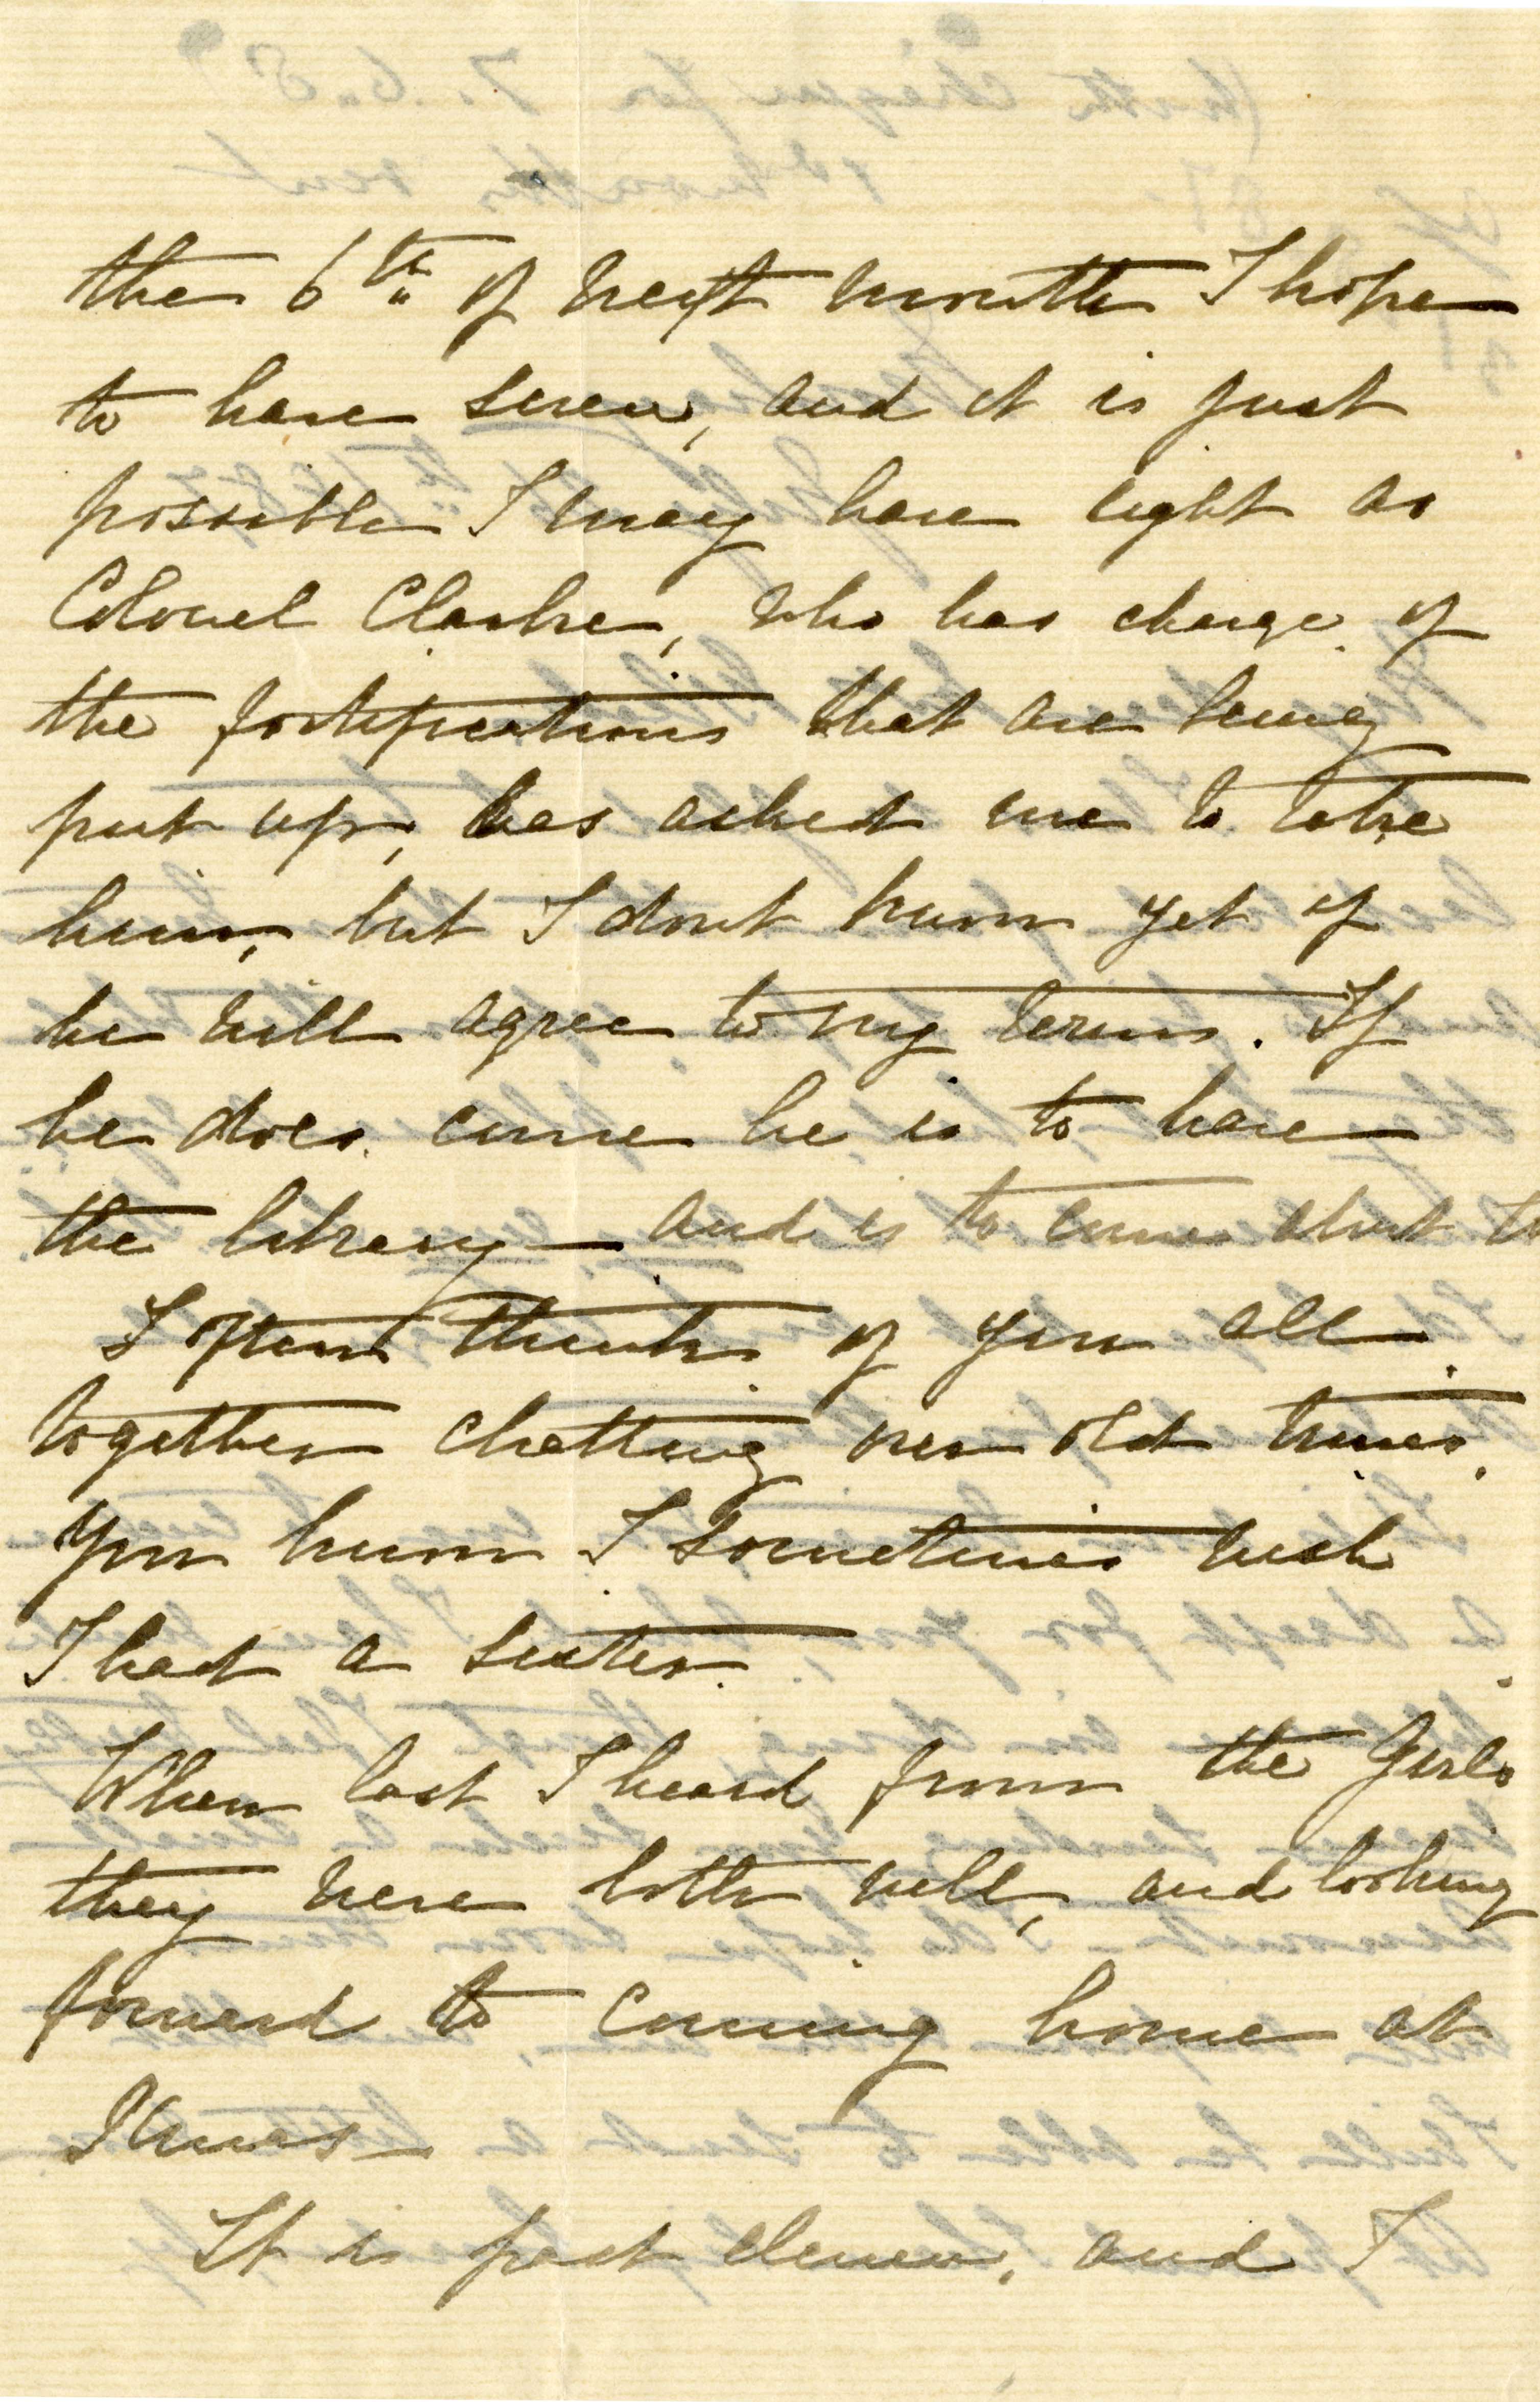 the 6th of next month I hope
to have seven, and it is just
possible I may have eight as
Colonel Clarke, who has charge of
the fortifications that are being
put up, has asked me to take
him, but I dont know yet if
he will agree to my terms. If
he does come he is to have
the library — and is to come about to
I often think of you all
together chatting over old times,
you know I sometimes wish
I had a sister.
When last I heard from the Girls
they were both well, and looking
forward to coming home at
Xmas —
It is past eleven, and I